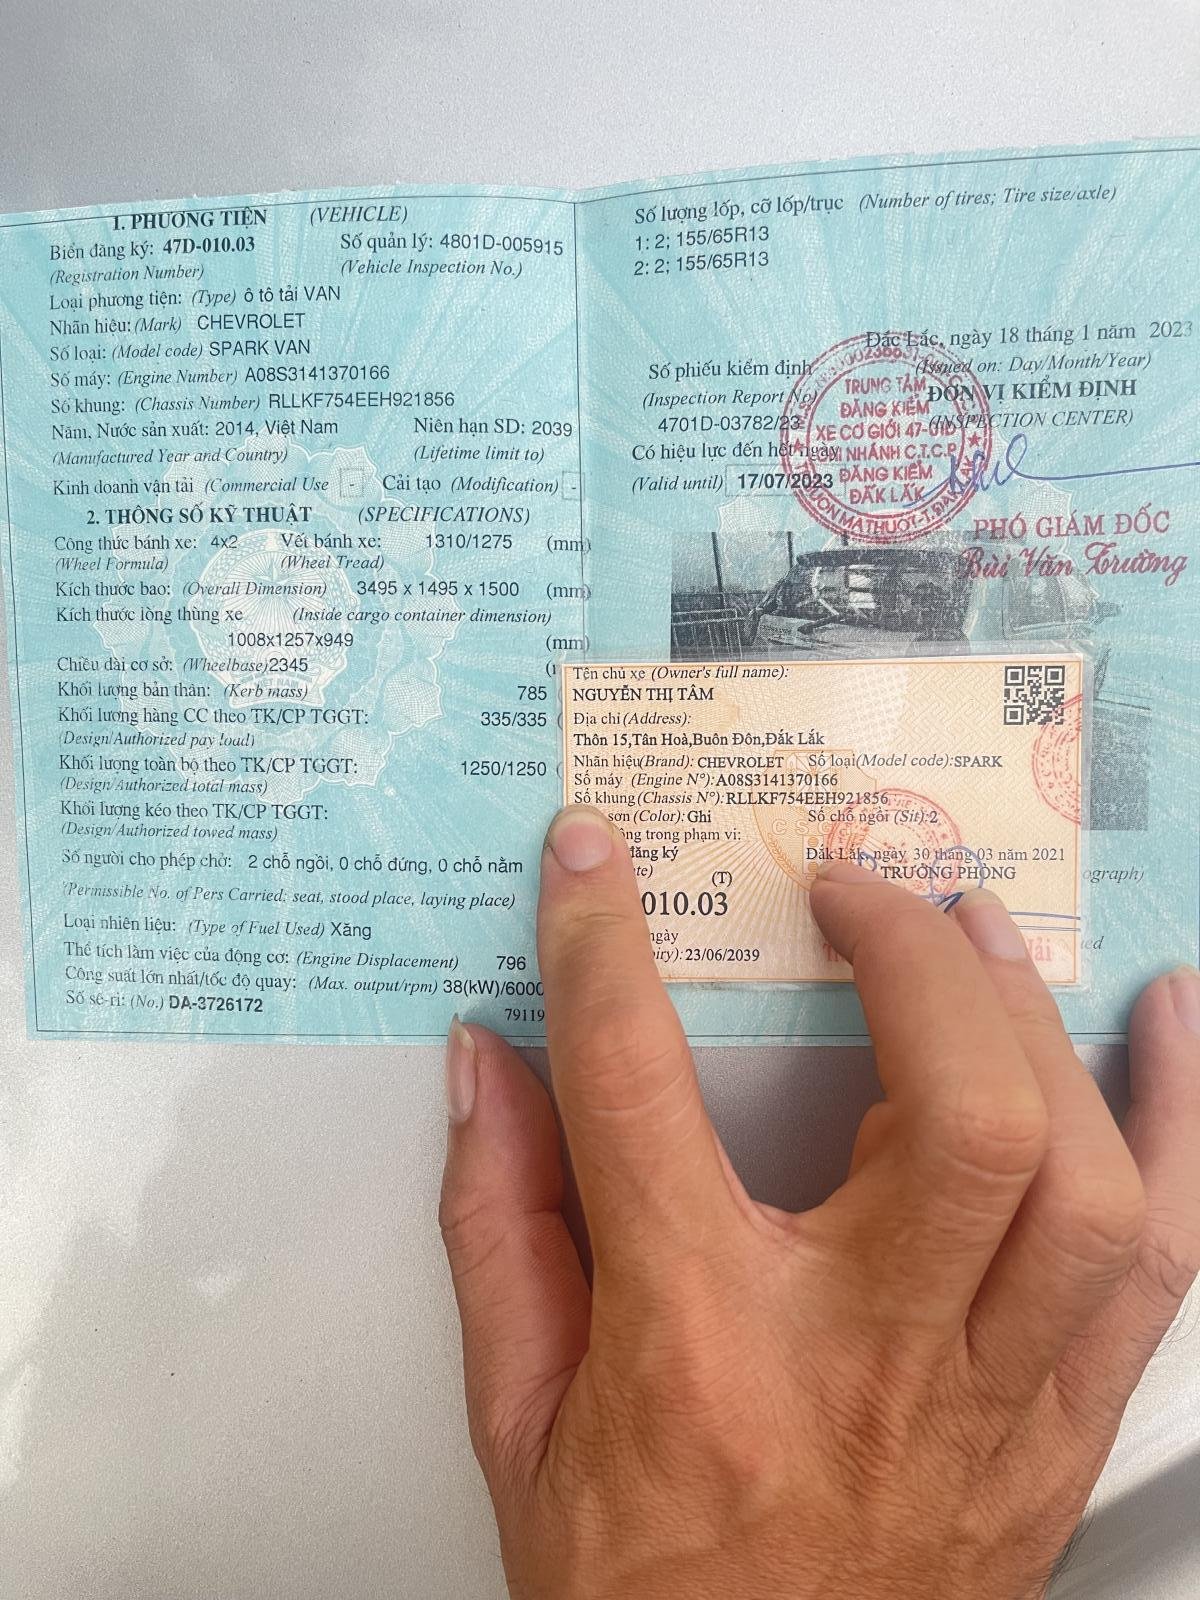 1. PHƯƠNG TIỆN (VEHICLE)
Biển đăng ký: 47D-010.03 Số quản lý: 4801D-005915
(Registration Number) (Vehicle Inspection No.)
Loại phương tiện: (Type) ô tô tải VAN
Nhãn hiệu: (Mark) CHEVROLET
Số loại: (Model code) SPARK VAN
Số máy: (Engine Number) A08S3141370166
Số khung: (Chassis Number) RLLKF754EEH921856
Năm, Nước sản xuất: 2014, Việt Nam Niên hạn SD: 2039
(Manufactured Year and Country) (Lifetime limit to)
Kinh doanh vận tải (Commercial Use - Cải tạo (Modification) -
2. THÔNG SỐ KỸ THUẬT (SPECIFICATIONS)
Công thức bánh xe: 4x2 Vết bánh xe: 1310/1275 (mm)
(Wheel Formula) (Wheel Tread)
Kích thước bao: (Overall Dimension) 3495 x 1495 x 1500 (mm)
Kích thước lòng thùng xe (Inside cargo container dimension)
1008x1257x949 (mm)
Chiều dài cơ sở: (Wheelbase)2345
Khối lượng bản thân: (Kerb mass) 785
Khối lượng hàng CC theo TK/CP TGGT: 335/335
(Design/Authorized pay load)
Khối lượng toàn bộ theo TK/CP TGGT: 1250/1250
(Design/Authorized total mass)
Khối lượng kéo theo TK/CP TGGT:
(Design/Authorized towed mass)
Số người cho phép chở: 2 chỗ ngồi, 0 chỗ đứng, 0 chỗ nằm
(Permissible No. of Pers Carried: seat, stood place, laying place)
Loại nhiên liệu: (Type of Fuel Used) Xăng
Thể tích làm việc của động cơ: (Engine Displacement) 796
Công suất lớn nhất/tốc độ quay: (Max. output/rpm) 38(kW)/6000
Số sê-ri: (No.) DA-3726172 79119
Số lượng lốp, cỡ lốp/trục (Number of tires; Tire size/axle)
1: 2; 155/65R13
2: 2; 155/65R13
Đắc Lắc, ngày 18 tháng 1 năm 2023
Số phiếu kiểm định (Issued on: Day/Month/Year)
(Inspection Report No) ĐƠN VỊ KIỂM ĐỊNH
4701D-03782/23 (INSPECTION CENTER)
Có hiệu lực đến hết ngày
(Valid until) 17/07/2023
TRUNG TÂM
ĐĂNG KIỂM
XE CƠ GIỚI 47-01D
CHI NHÁNH C.T.C.P
ĐĂNG KIỂM
ĐẮK LẮK
PHÓ GIÁM ĐỐC
Bùi Văn Trường
Tên chủ xe (Owner's full name):
NGUYỄN THỊ TÂM
Địa chỉ (Address):
Thôn 15,Tân Hoà,Buôn Đôn,Đắk Lắk
Nhãn hiệu(Brand): CHEVROLET Số loại(Model code):SPARK
Số máy (Engine Nº):A08S3141370166
Số khung (Chassis Nº):RLLKF754EEH921856
sơn (Color): Ghi Số chỗ ngồi (Sit):2
trong phạm vi:
đăng ký Đắk Lắk, ngày 30 tháng 03 năm 2021
(T) TRƯỞNG PHÒNG
010.03
ngày
23/06/2039